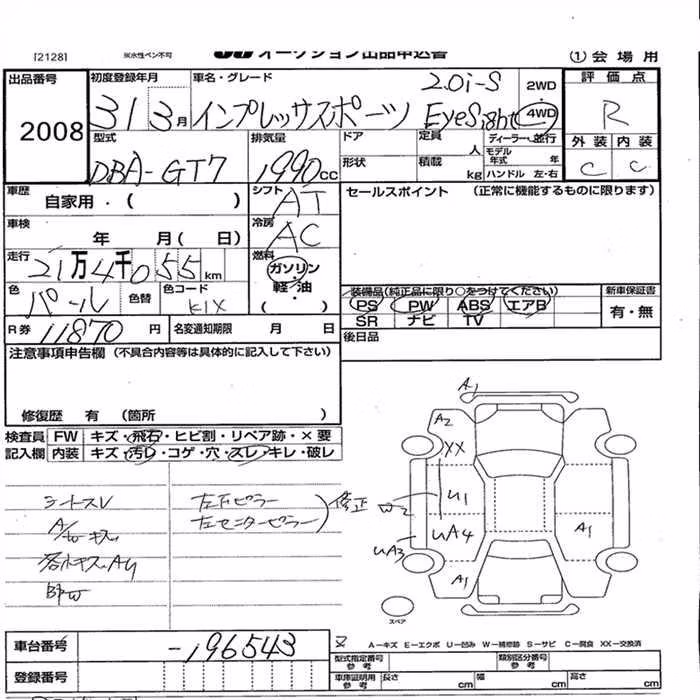 [2128]
耐水性ペン不可
オークション出品申込書
①会場用
出品番号
2008
初度登録年月
31 3月
車名・グレード
2.0i-S
インプレッサスポーツ EyeSight
2WD
4WD
評価点
R
型式
DBA-GT7
排気量
1990cc
ドア
形状
定員
人
積載
kg
ディーラー・並行
モデル年式
年
ハンドル 左・右
外装
内装
C
C
車歴
自家用・( )
シフト
AT
セールスポイント (正常に機能するものに限ります)
車検
年 月( 日)
冷房
AC
走行
21万4千055km
燃料
ガソリン
軽・油
( )
色
パール
色替
色コード
K1X
装備品(純正品に限り○をつけてください)
PS PW ABS エアB
SR ナビ TV
新車保証書
有・無
R券
11870円
名変通知期限 月 日
後日品
注意事項申告欄 (不具合内容等は具体的に記入して下さい)
修復歴 有 (箇所 )
検査員記入欄
FW キズ・飛石・ヒビ割・リペア跡・×要
内装 キズ・汚レ・コゲ・穴・スレ・キレ・破レ
シートスレ
左下ピラー
左センターピラー
修正
A1
A2
XX
U1
W2
UA4
UA3
A1
A1
スペア
車台番号
-196543
A-キズ E-エクボ U-凹み W-補修跡 S-サビ C-腐食 XX-交換済
登録番号
型式指定番号
参考
類別区分番号
参考
車庫証明用
参考
長さ cm
幅 cm
高さ cm